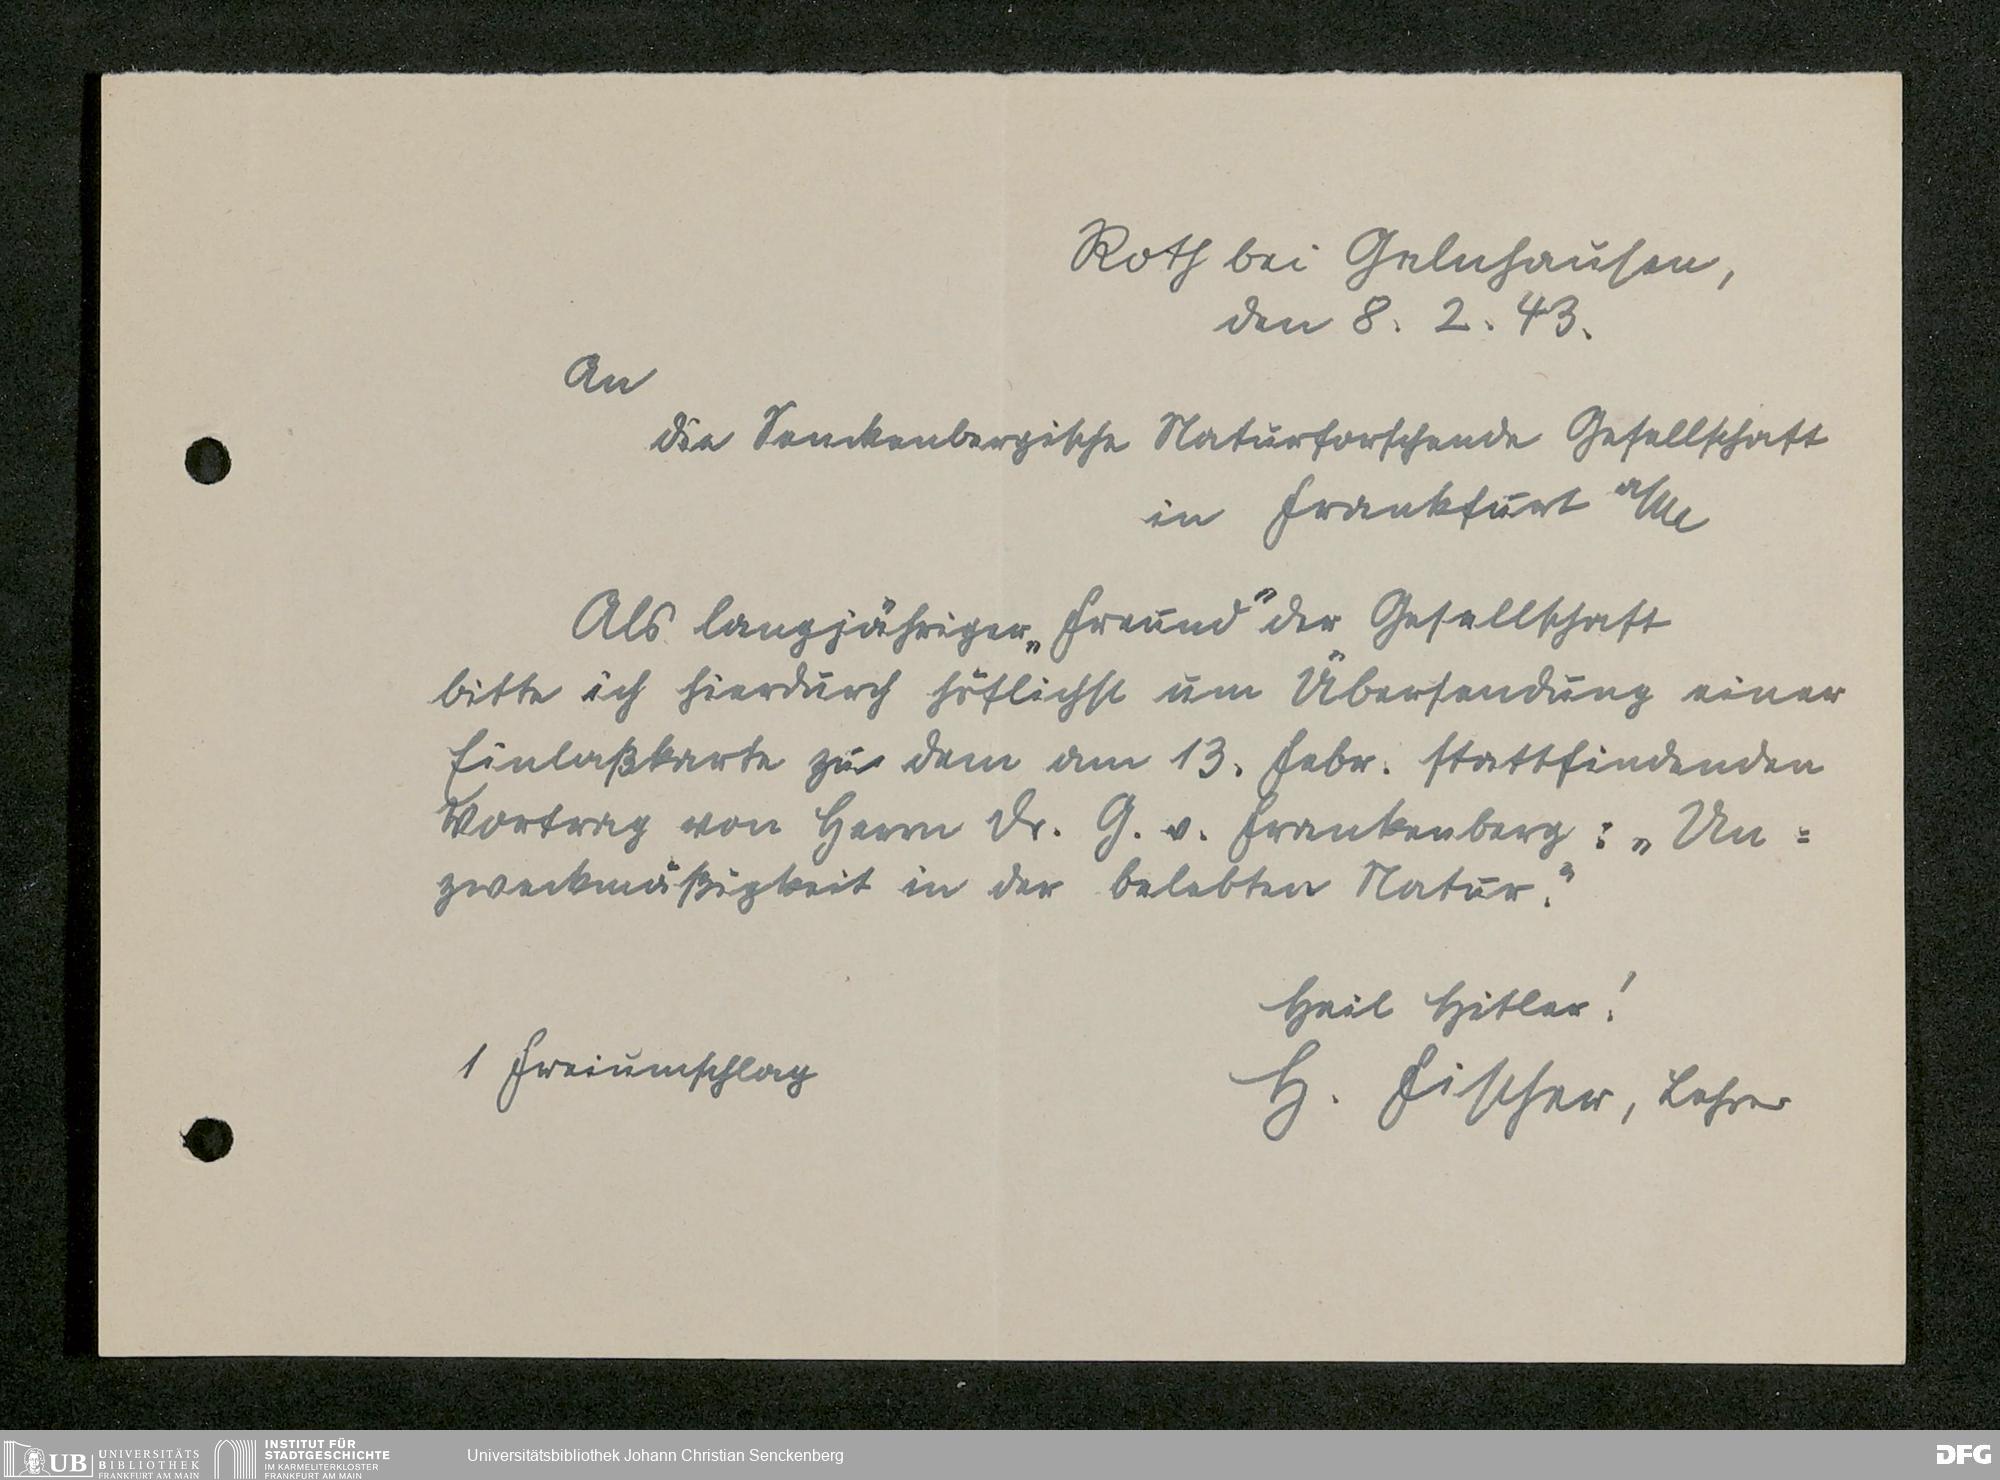 Roth bei Gelnhausen,
den 8. 2. 43.
An
die Senckenbergische Naturforschende Gesellschaft
in Frankfurt a/M
Als langjähriger „Freund" der Gesellschaft
bitte ich hierdurch höflichst um Übersendung einer
Einlaßkarte zu dem am 13. Febr. stattfindenden
Vortrag von Herrn Dr. G. v. Frankenberg: „Un=
zweckmäßigkeit in der belebten Natur."
Heil Hitler!
1 Freiumschlag
H. Fischer, Lehrer
UB UNIVERSITÄTS
BIBLIOTHEK
FRANKFURT AM MAIN
INSTITUT FÜR
STADTGESCHICHTE
IM KARMELITERKLOSTER
FRANKFURT AM MAIN
Universitätsbibliothek Johann Christian Senckenberg
DFG